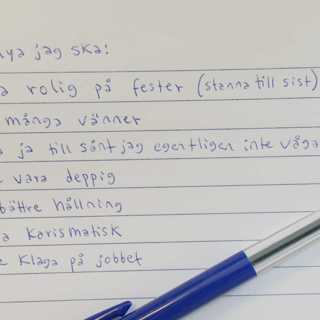 nya jag ska:
a rolig på fester (stanna till sist)
många vänner
ja till sånt jag egentligen inte våga
vara deppig
bättre hållning
a Karismatisk
Klaga på jobbet